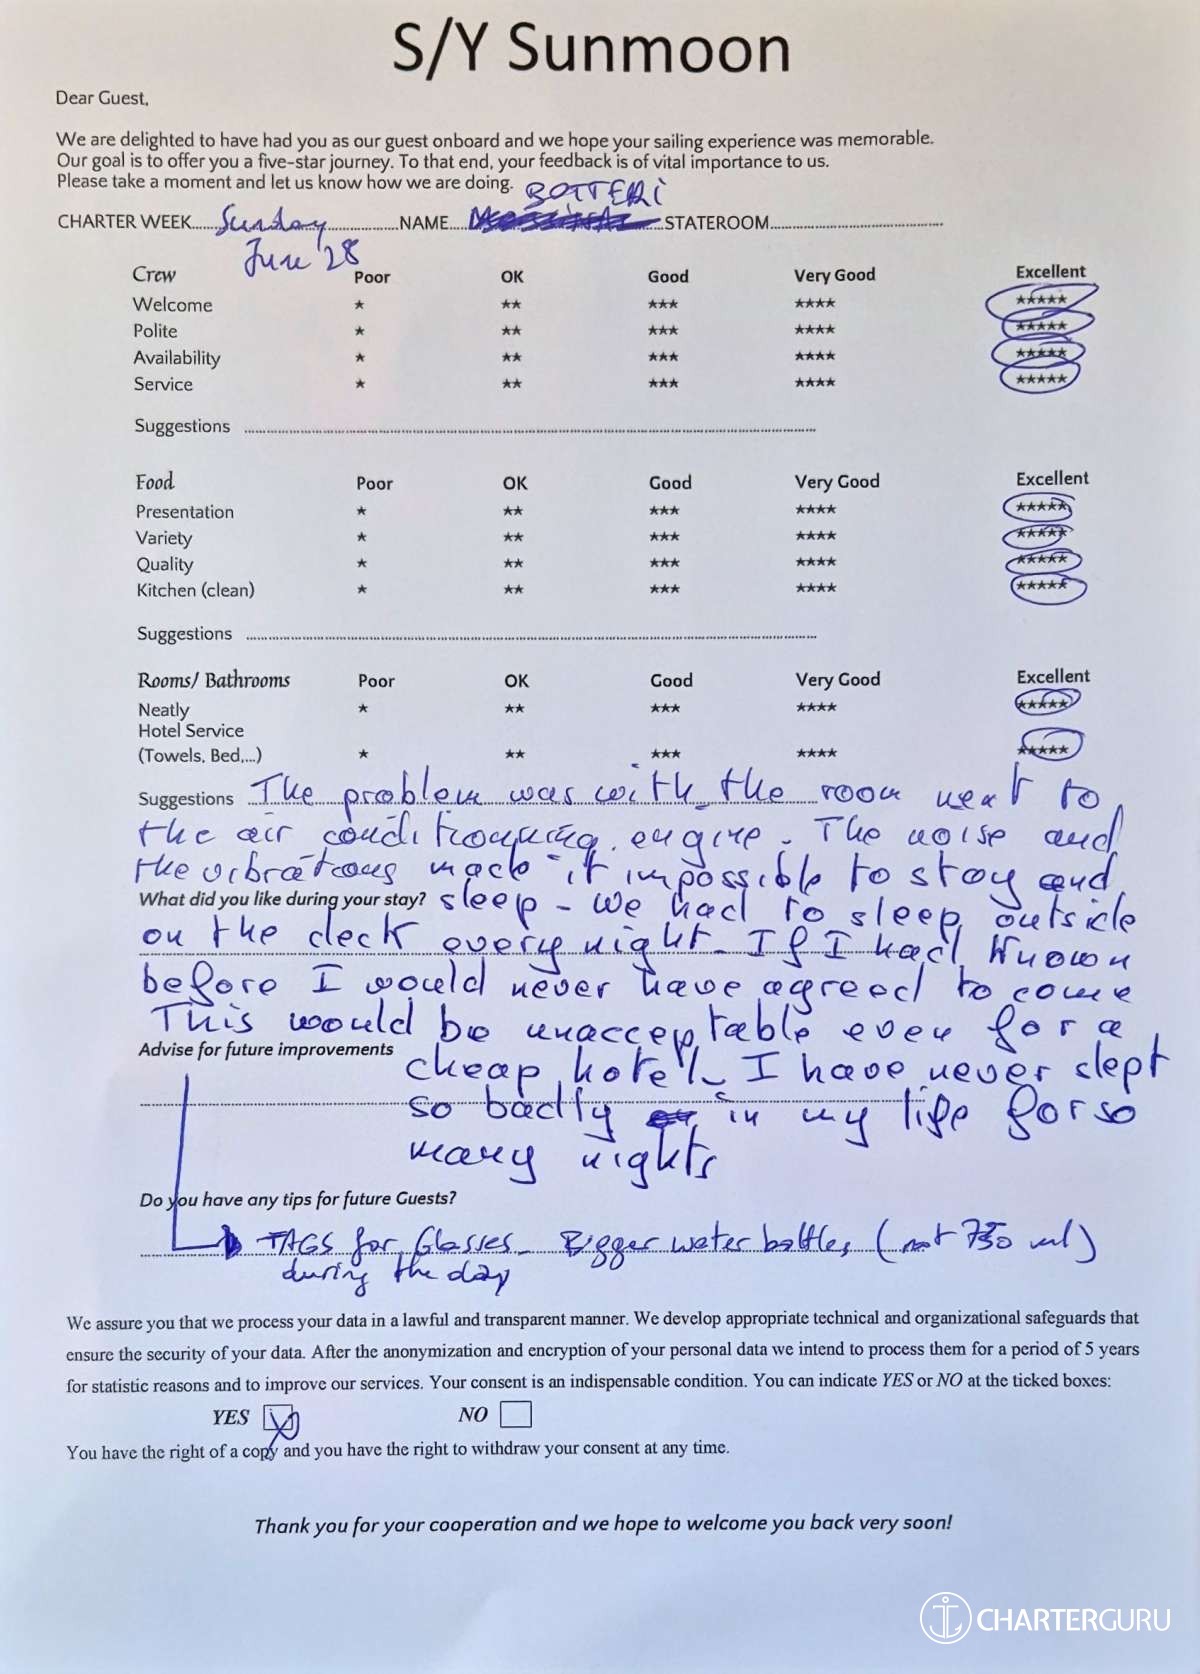 S/Y Sunmoon
Dear Guest,
We are delighted to have had you as our guest onboard and we hope your sailing experience was memorable.
Our goal is to offer you a five-star journey. To that end, your feedback is of vital importance to us.
Please take a moment and let us know how we are doing.
BOTTERI
CHARTER WEEK Sunday NAME STATEROOM
June 28
Crew Poor OK Good Very Good Excellent
Welcome ★ ★★ ★★★ ★★★★ ★★★★★
Polite ★ ★★ ★★★ ★★★★ ★★★★★
Availability ★ ★★ ★★★ ★★★★ ★★★★★
Service ★ ★★ ★★★ ★★★★ ★★★★★
Suggestions
Food Poor OK Good Very Good Excellent
Presentation ★ ★★ ★★★ ★★★★ ★★★★★
Variety ★ ★★ ★★★ ★★★★ ★★★★★
Quality ★ ★★ ★★★ ★★★★ ★★★★★
Kitchen (clean) ★ ★★ ★★★ ★★★★ ★★★★★
Suggestions
Rooms/ Bathrooms Poor OK Good Very Good Excellent
Neatly ★ ★★ ★★★ ★★★★ ★★★★★
Hotel Service
(Towels, Bed,...) ★ ★★ ★★★ ★★★★ ★★★★★
Suggestions The problem was with the room next to
the air conditionning engine. The noise and
the vibrations made it impossible to stay and
What did you like during your stay? sleep - we had to sleep outside
on the deck every night. If I had known
before I would never have agreed to come
This would be unacceptable even for a
Advise for future improvements cheap hotel. I have never slept
so badly in my life for so
many nights
Do you have any tips for future Guests?
TAGS for Glasses - Bigger water bottles (not 750 ml)
during the day
We assure you that we process your data in a lawful and transparent manner. We develop appropriate technical and organizational safeguards that
ensure the security of your data. After the anonymization and encryption of your personal data we intend to process them for a period of 5 years
for statistic reasons and to improve our services. Your consent is an indispensable condition. You can indicate YES or NO at the ticked boxes:
YES NO
You have the right of a copy and you have the right to withdraw your consent at any time.
Thank you for your cooperation and we hope to welcome you back very soon!
CHARTERGURU